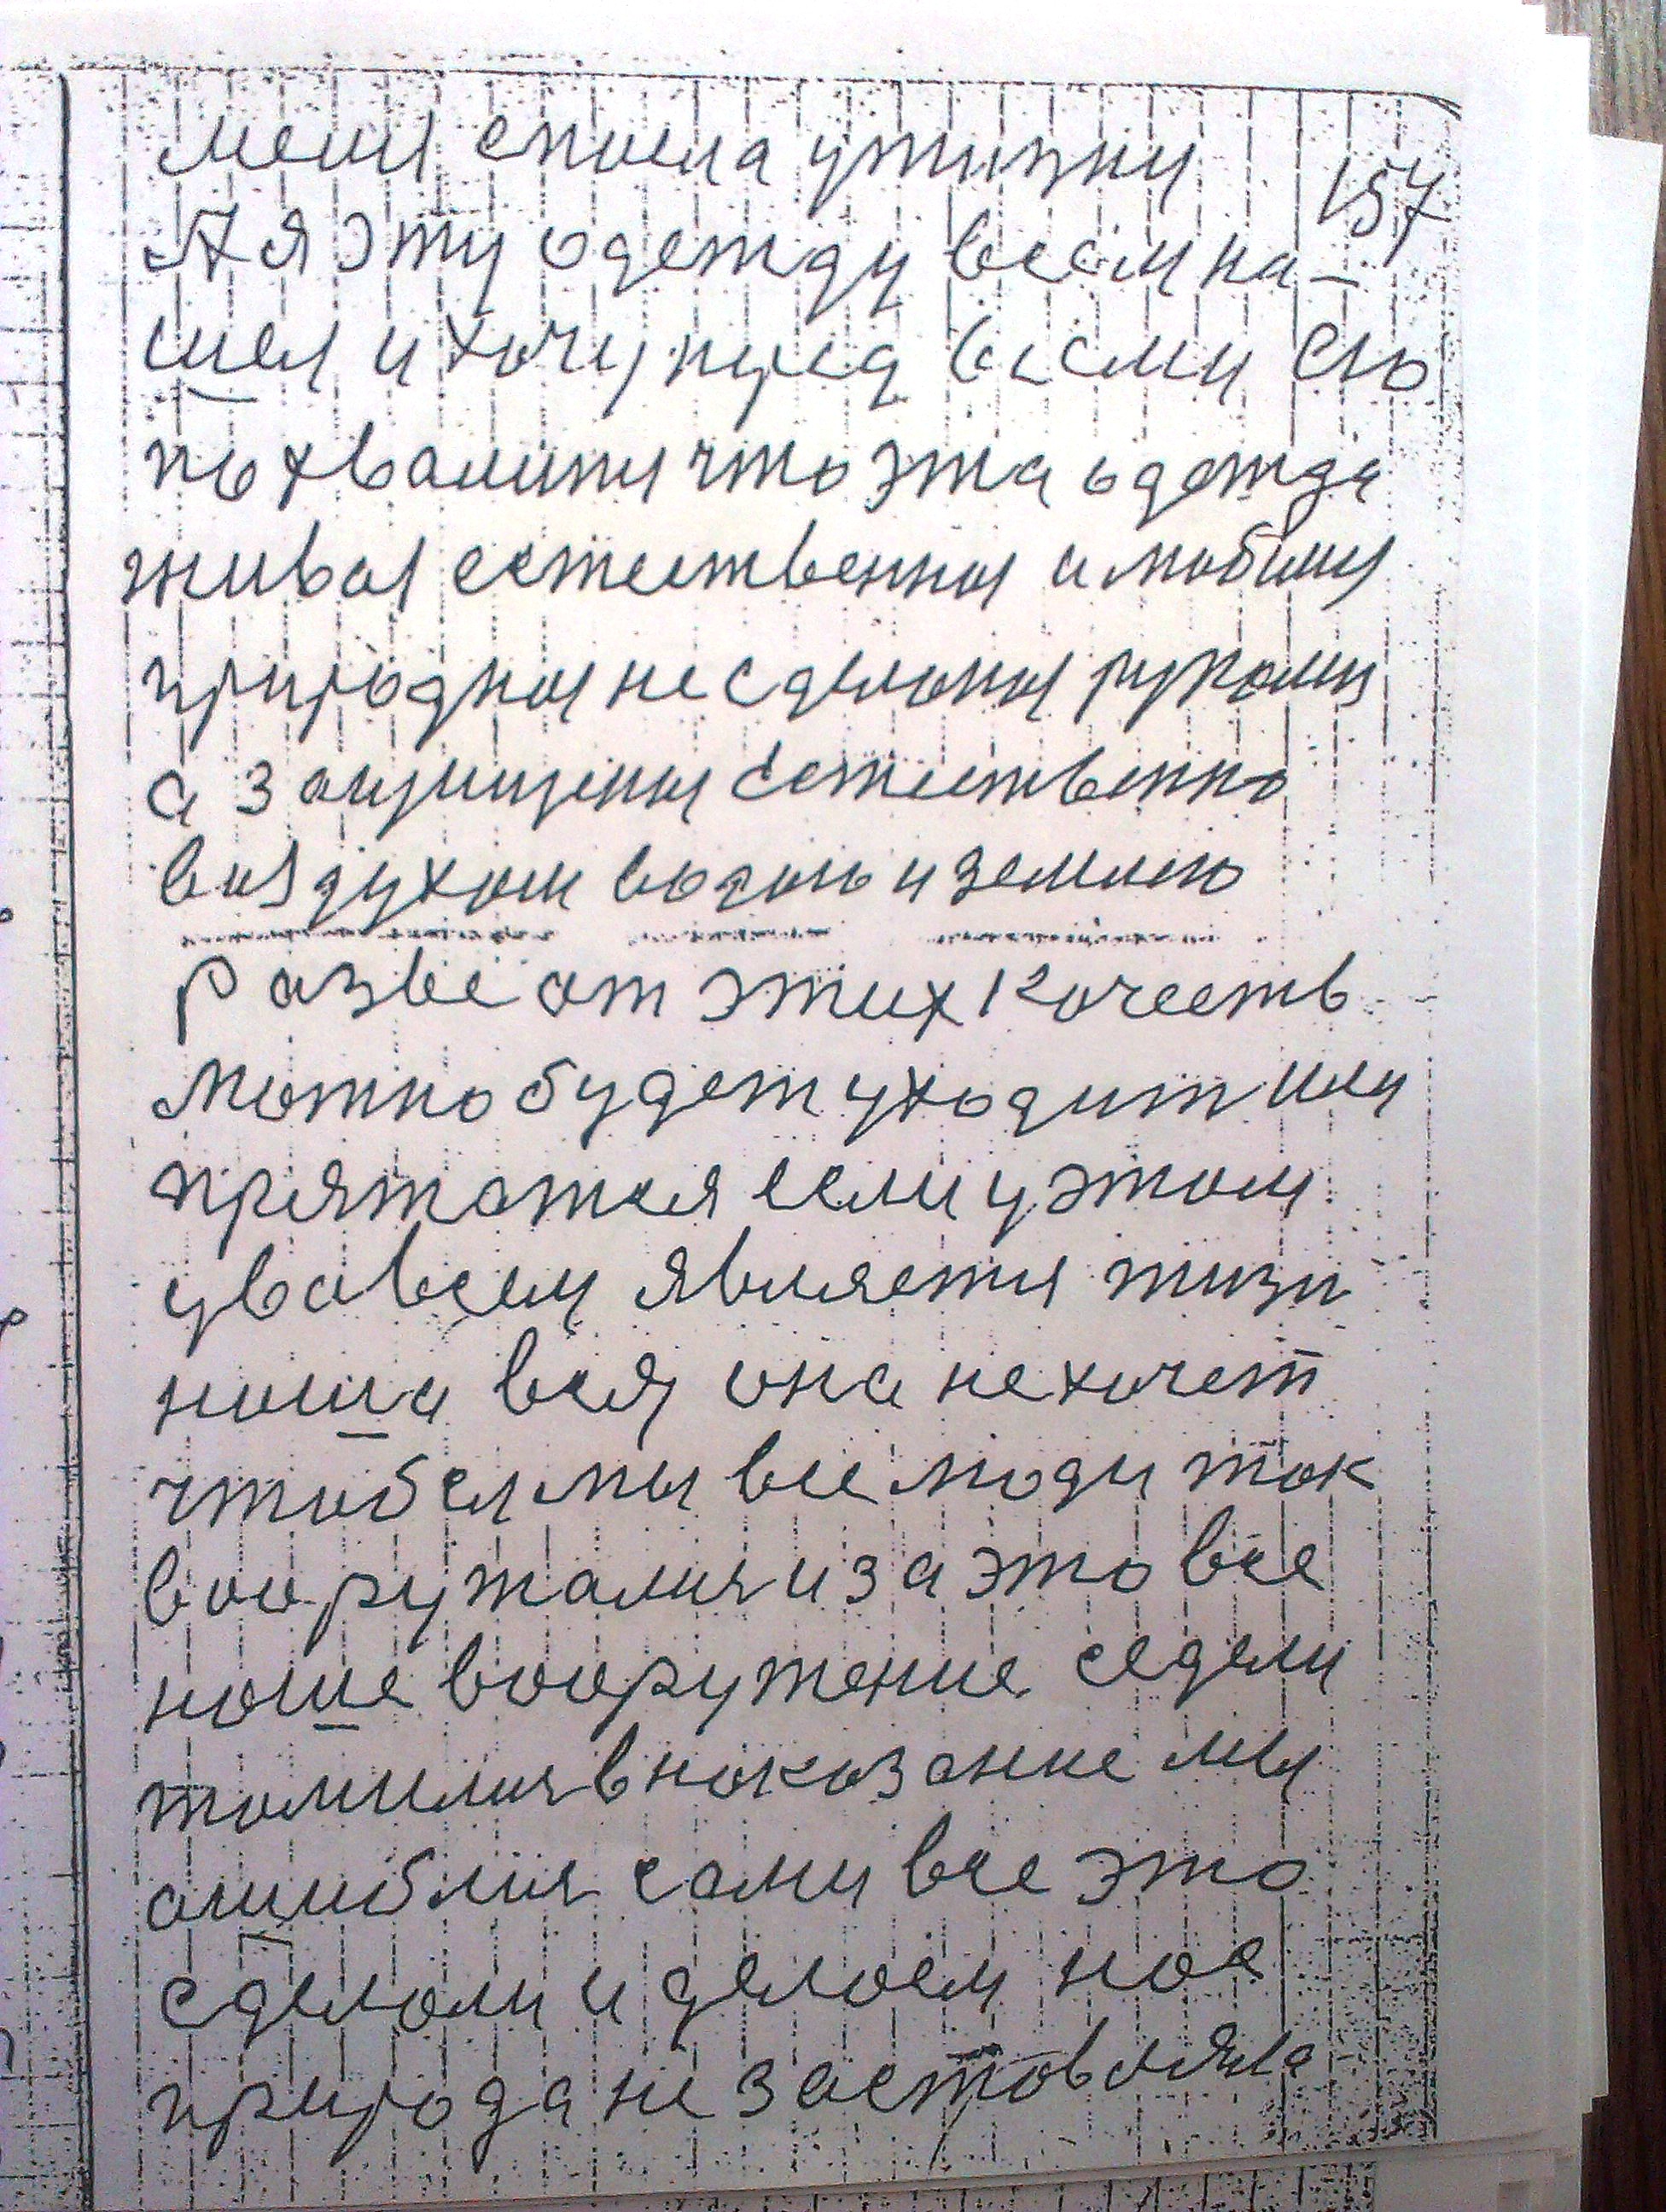 меня спасла ут жизни
157
А я эту одежду всем на-
шел и хочу пред всеми ею
похвалится что эта одежда
живая естественная и любимая
природная не сделаная руками
а защищеная естественно
воздухом водою и землею
Разве от этих качеств
можно будет уходит или
прятатся если у этом
у вовсем является жизн
наша вся она не хочет
чтобы мы все люди так
вооружался и за это все
наше вооружение сздели
томился в наказание мы
ошиблися сами все это
сделали и делаем нас
природа не заставляла